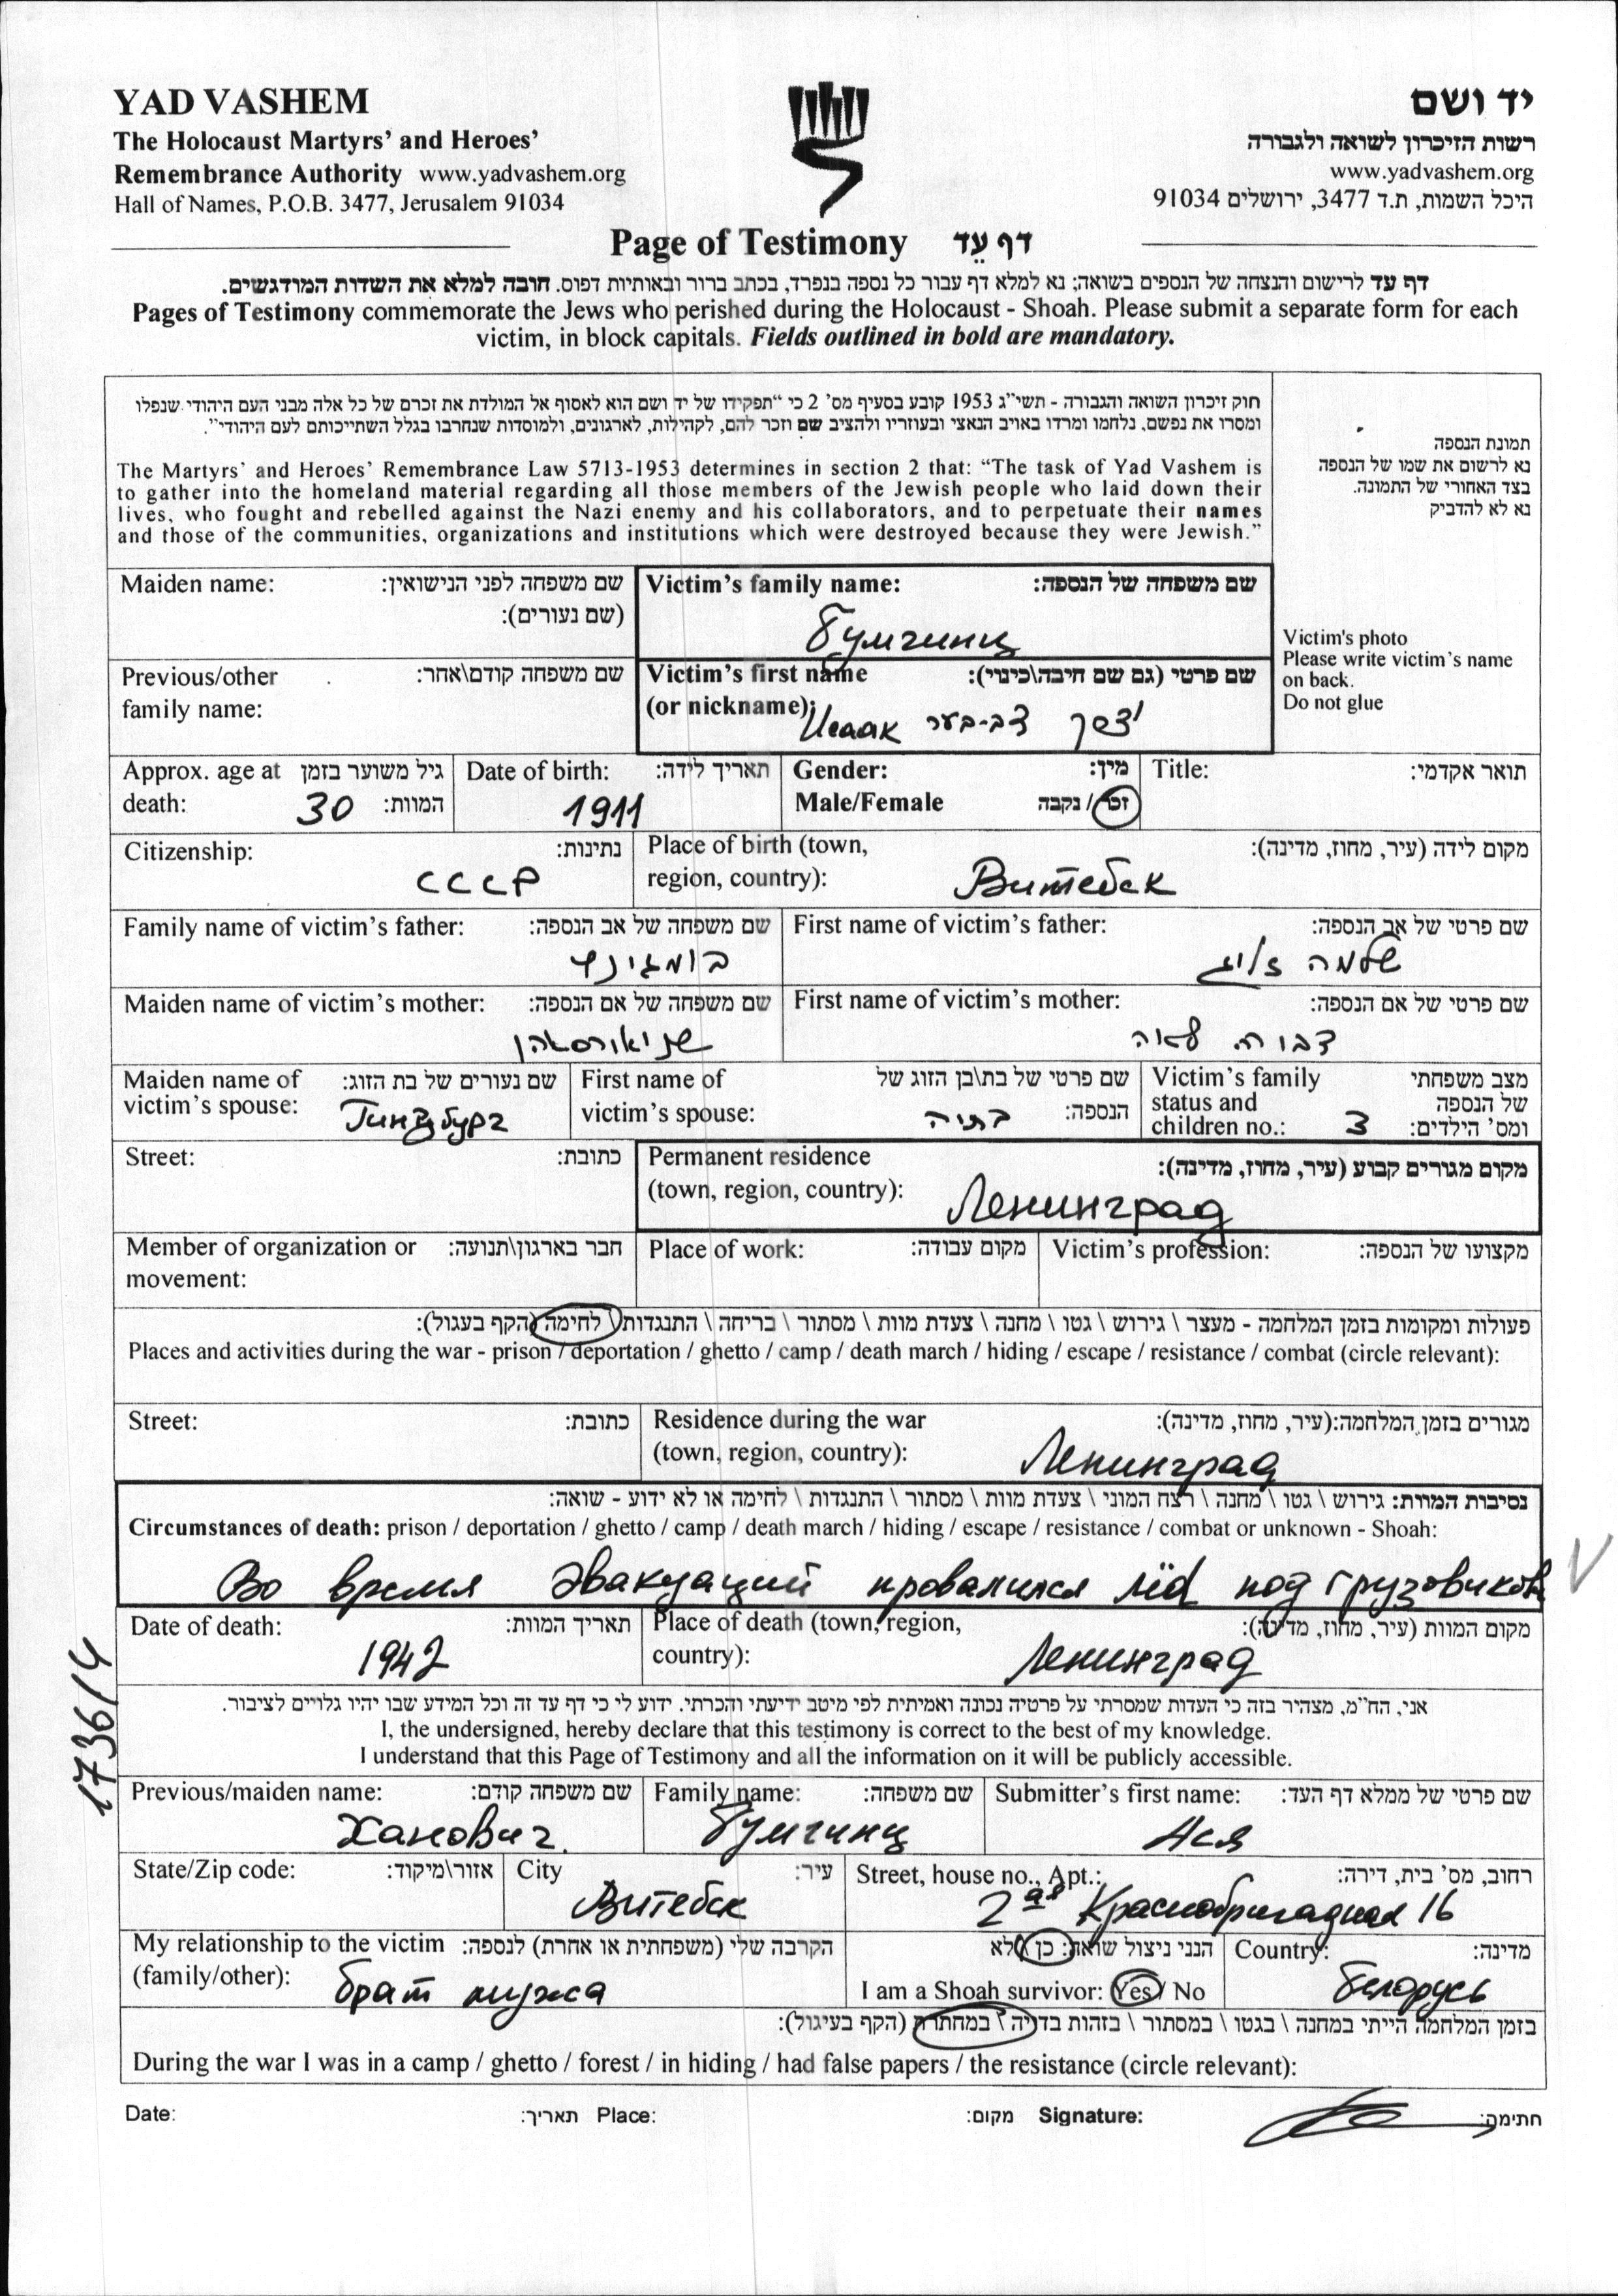 YAD VASHEM
The Holocaust Martyrs' and Heroes'
Remembrance Authority www.yadvashem.org
Hall of Names, P.O.B. 3477, Jerusalem 91034
יד ושם
רשות הזיכרון לשואה ולגבורה
www.yadvashem.org
היכל השמות, ת.ד 3477, ירושלים 91034
Page of Testimony דף עֵד
דף עד לרישום והנצחה של הנספים בשואה; נא למלא דף עבור כל נספה בנפרד, בכתב ברור ובאותיות דפוס. חובה למלא את השדות המודגשים.
Pages of Testimony commemorate the Jews who perished during the Holocaust - Shoah. Please submit a separate form for each
victim, in block capitals. Fields outlined in bold are mandatory.
חוק זיכרון השואה והגבורה - תשי"ג 1953 קובע בסעיף מס' 2 כי "תפקידו של יד ושם הוא לאסוף אל המולדת את זכרם של כל אלה מבני העם היהודי שנפלו
ומסרו את נפשם, נלחמו ומרדו באויב הנאצי ובעוזריו ולהציב שם וזכר להם, לקהילות, לארגונים, ולמוסדות שנחרבו בגלל השתייכותם לעם היהודי".
The Martyrs' and Heroes' Remembrance Law 5713-1953 determines in section 2 that: "The task of Yad Vashem is
to gather into the homeland material regarding all those members of the Jewish people who laid down their
lives, who fought and rebelled against the Nazi enemy and his collaborators, and to perpetuate their names
and those of the communities, organizations and institutions which were destroyed because they were Jewish."
תמונת הנספה
נא לרשום את שמו של הנספה
בצד האחורי של התמונה.
נא לא להדביק
Victim's photo
Please write victim's name
on back.
Do not glue
Maiden name: שם משפחה לפני הנישואין:
(שם נעורים):
Victim's family name: שם משפחה של הנספה:
Бумгинц
Previous/other שם משפחה קודם\אחר:
family name:
Victim's first name שם פרטי (גם שם חיבה\כינוי):
(or nickname):
Исаак יצחק דב-בער
Approx. age at גיל משוער בזמן
death: 30 המוות:
Date of birth: תאריך לידה:
1911
Gender: מין:
Male/Female זכר / נקבה
Title: תואר אקדמי:
Citizenship: נתינות:
СССР
Place of birth (town, מקום לידה (עיר, מחוז, מדינה):
region, country): Витебск
Family name of victim's father: שם משפחה של אב הנספה:
בומגינץ
First name of victim's father: שם פרטי של אב הנספה:
שלמה זליג
Maiden name of victim's mother: שם משפחה של אם הנספה:
שניאורסאהן
First name of victim's mother: שם פרטי של אם הנספה:
דבורה לאה
Maiden name of שם נעורים של בת הזוג:
victim's spouse: Гинзбург
First name of שם פרטי של בת\בן הזוג של
victim's spouse: בתיה הנספה:
Victim's family מצב משפחתי
status and של הנספה
children no.: 3 ומס' הילדים:
Street: כתובת:
Permanent residence מקום מגורים קבוע (עיר, מחוז, מדינה):
(town, region, country): Ленинград
Member of organization or חבר בארגון\תנועה:
movement:
Place of work: מקום עבודה:
Victim's profession: מקצועו של הנספה:
פעולות ומקומות בזמן המלחמה - מעצר \ גירוש \ גטו \ מחנה \ צעדת מוות \ מסתור \ בריחה \ התנגדות \ לחימה (הקף בעגול):
Places and activities during the war - prison / deportation / ghetto / camp / death march / hiding / escape / resistance / combat (circle relevant):
Street: כתובת:
Residence during the war מגורים בזמן המלחמה:(עיר, מחוז, מדינה):
(town, region, country): Ленинград
נסיבות המוות: גירוש \ גטו \ מחנה \ רצח המוני \ צעדת מוות \ מסתור \ התנגדות \ לחימה או לא ידוע - שואה:
Circumstances of death: prison / deportation / ghetto / camp / death march / hiding / escape / resistance / combat or unknown - Shoah:
Во время эвакуаций провалился лёd под грузовиком
Date of death: תאריך המוות:
1942
Place of death (town, region, מקום המוות (עיר, מחוז, מדינה):
country): Ленинград
אני, הח"מ, מצהיר בזה כי העדות שמסרתי על פרטיה נכונה ואמיתית לפי מיטב ידיעתי והכרתי. ידוע לי כי דף עד זה וכל המידע שבו יהיו גלויים לציבור.
I, the undersigned, hereby declare that this testimony is correct to the best of my knowledge.
I understand that this Page of Testimony and all the information on it will be publicly accessible.
173614
Previous/maiden name: שם משפחה קודם:
Ханович.
Family name: שם משפחה:
Бумгинц
Submitter's first name: שם פרטי של ממלא דף העד:
Ася
State/Zip code: אזור\מיקוד:
City עיר:
Витебск
Street, house no., Apt.: רחוב, מס' בית, דירה:
2ая Краснобригадная 16
My relationship to the victim הקרבה שלי (משפחתית או אחרת) לנספה:
(family/other): брат мужа
הנני ניצול שואה: כן \ לא
I am a Shoah survivor: Yes / No
Country: מדינה:
Белорусь
בזמן המלחמה הייתי במחנה \ בגטו \ במסתור \ בזהות בדויה \ במחתרת (הקף בעיגול):
During the war I was in a camp / ghetto / forest / in hiding / had false papers / the resistance (circle relevant):
Date: תאריך: Place: מקום: Signature: חתימה: